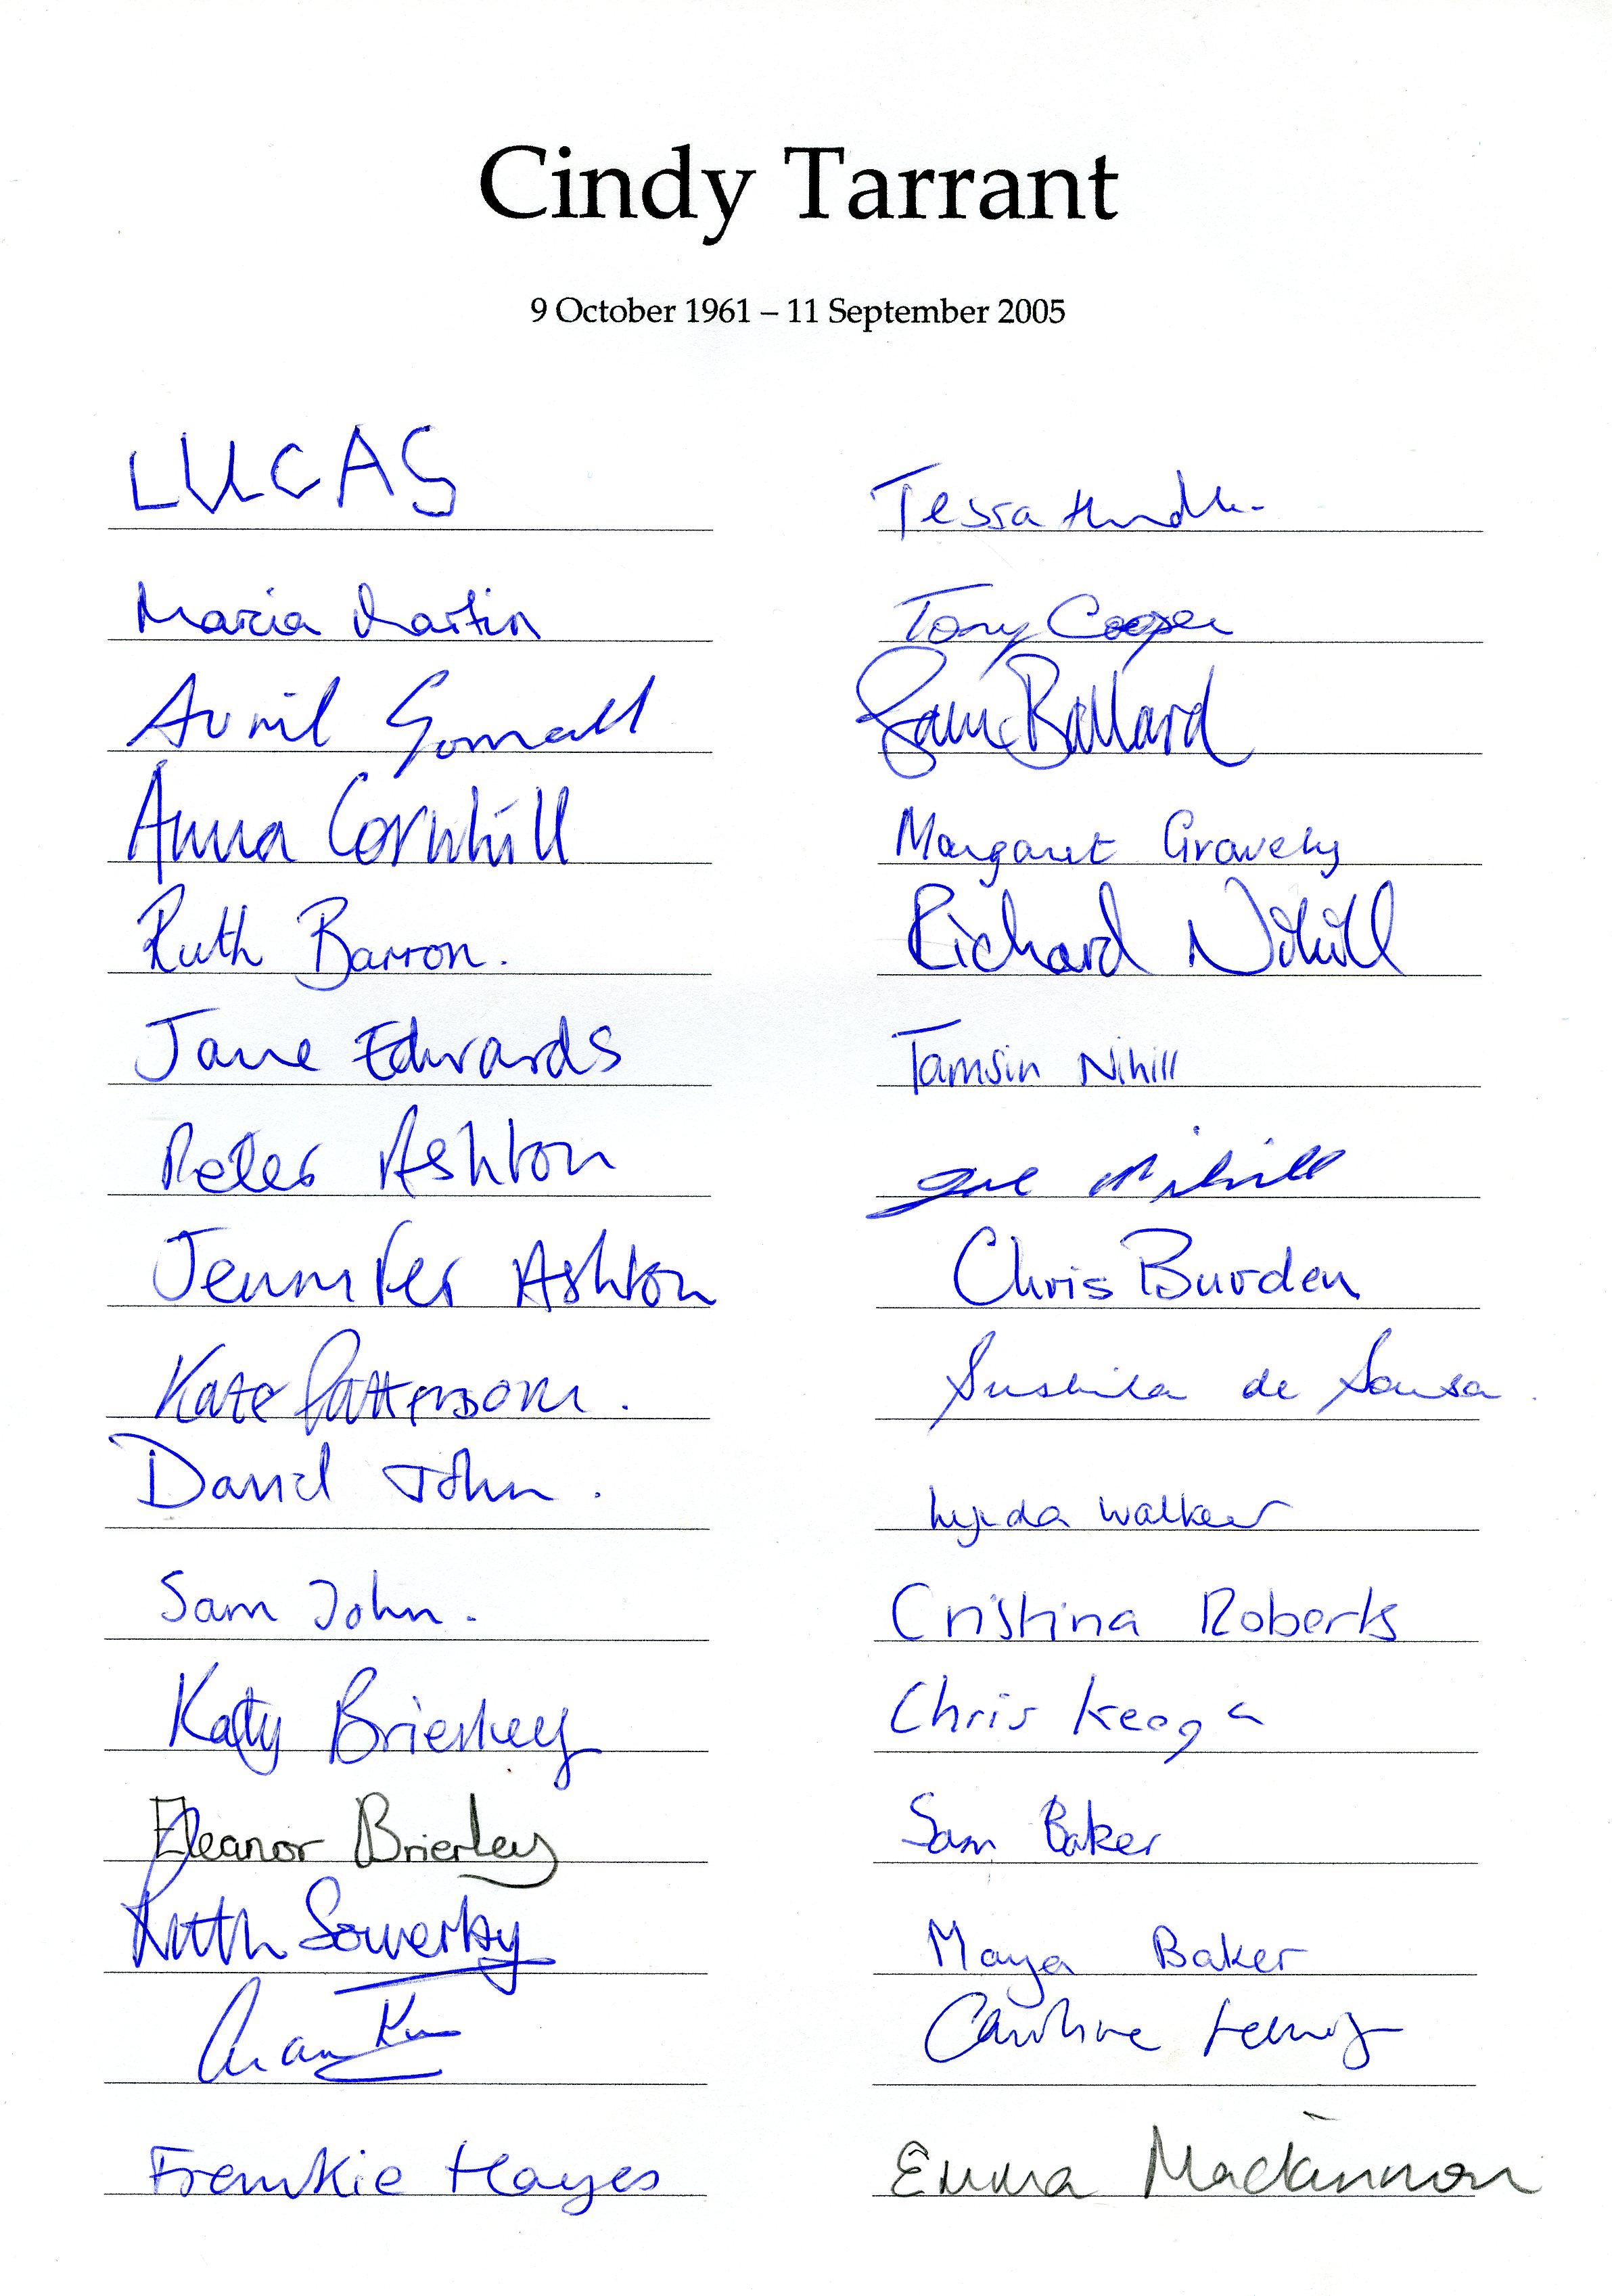 Cindy Tarrant
9 October 1961 – 11 September 2005
LUCAS
Marcia Martin
Avril Gornall
Anna Cornhill
Ruth Barron.
Jane Edwards
Peter Ashton
Jennifer Ashton
Kate Patterson.
David John.
Sam John.
Katy Brierley
Eleanor Brierley
Ruth Sowerby
Frankie Hayes
Tessa
Tony Cooper
Ballard
Margaret Gravely
Richard Nihill
Tamsin Nihill
Nihill
Chris Burden
Sushila de Sousa.
Lynda Walker
Cristina Roberts
Chris Keoga
Sam Baker
Maya Baker
Caroline
Emma Mackinnon